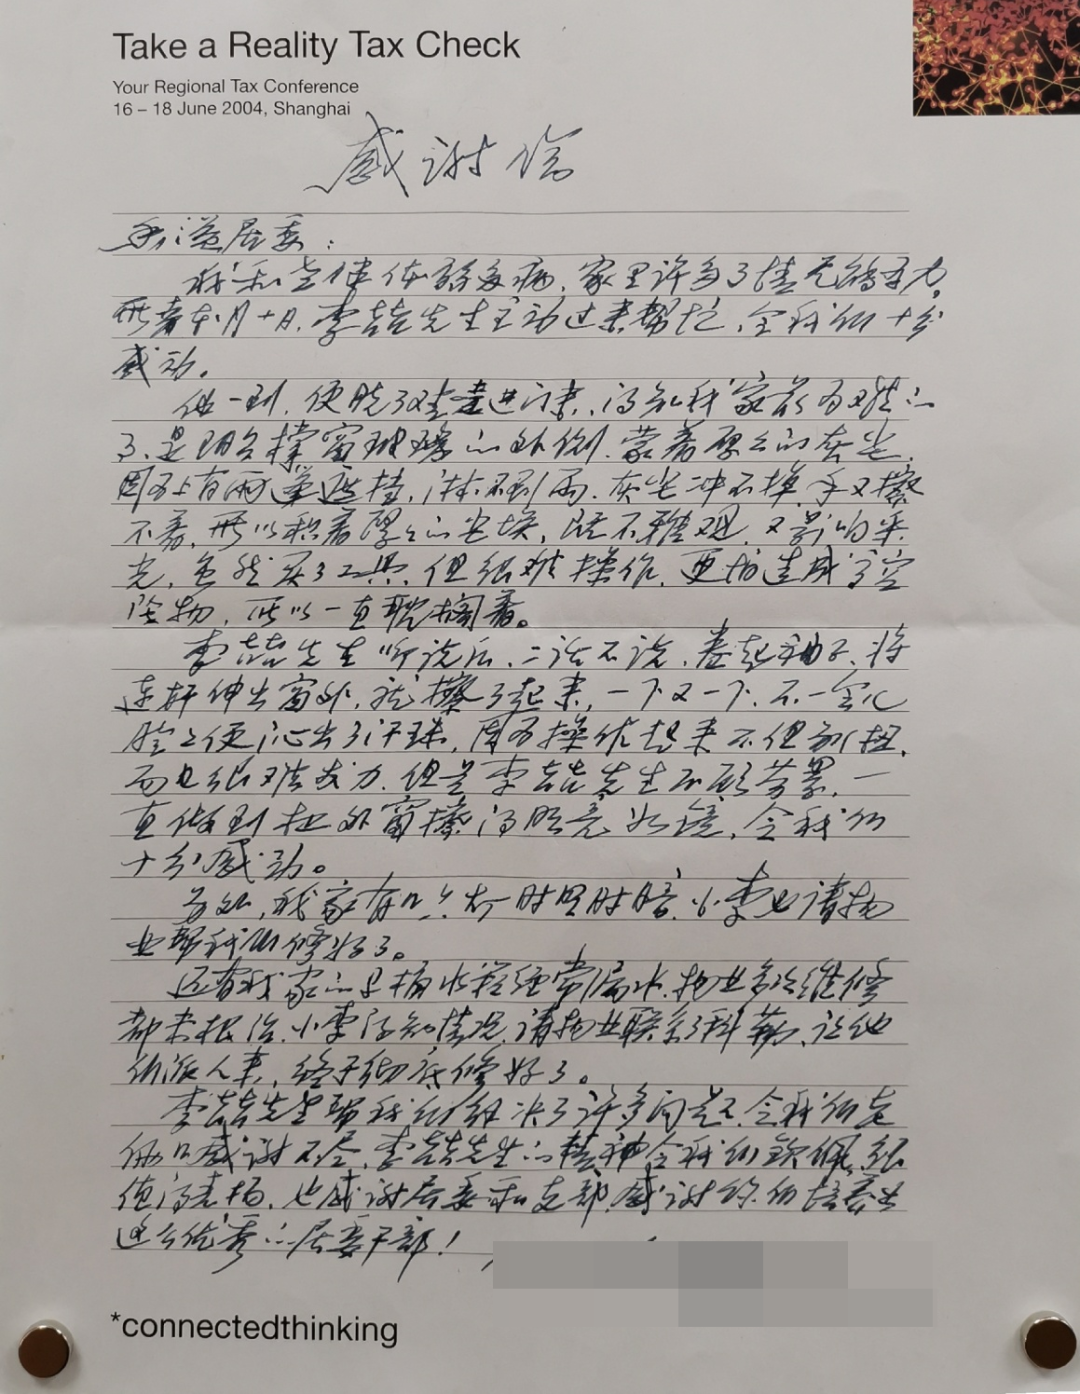 Take a Reality Tax Check
Your Regional Tax Conference
16 – 18 June 2004, Shanghai
感谢信
益居委：
我和老伴体弱多病，家里许多事情无能为力，
所幸本月十日，李喆先生主动过来帮忙，令我们十分
感动。
他一到，便脱了鞋走进门来，得知我家最为难的
了，是阳台撑窗玻璃的外侧，蒙着厚厚的灰尘，
因为上有雨篷遮挡，淋不到雨，灰尘冲不掉，手又擦
不着，所以积着厚厚的尘埃，既不雅观，又影响采
光，虽然买了工具，但很难操作，更怕造成高空
坠物，所以一直耽搁着。
李喆先生听说后，二话不说，卷起袖子，将
连杆伸出窗外，就擦了起来，一下又一下，不一会儿
脸上便沁出了汗珠，因为操作起来不但别扭，
而且很难发力，但是李喆先生不顾劳累，一
直做到把外窗擦得明亮如镜，令我们
十分感动。
另外，我家有只灯时明时暗，小李也请物
业帮我们修好了。
还有我家的马桶水箱经常漏水，物业多次维修
都未根治，小李得知情况，请物业联系了科勒，让他
们派人来，终于彻底修好了。
李喆先生帮我们解决了许多问题，令我们
感谢不尽，李喆先生的精神令我们钦佩，很
值得表扬，也感谢居委和支部，感谢你们培养出
这么优秀的居委干部！
*connectedthinking